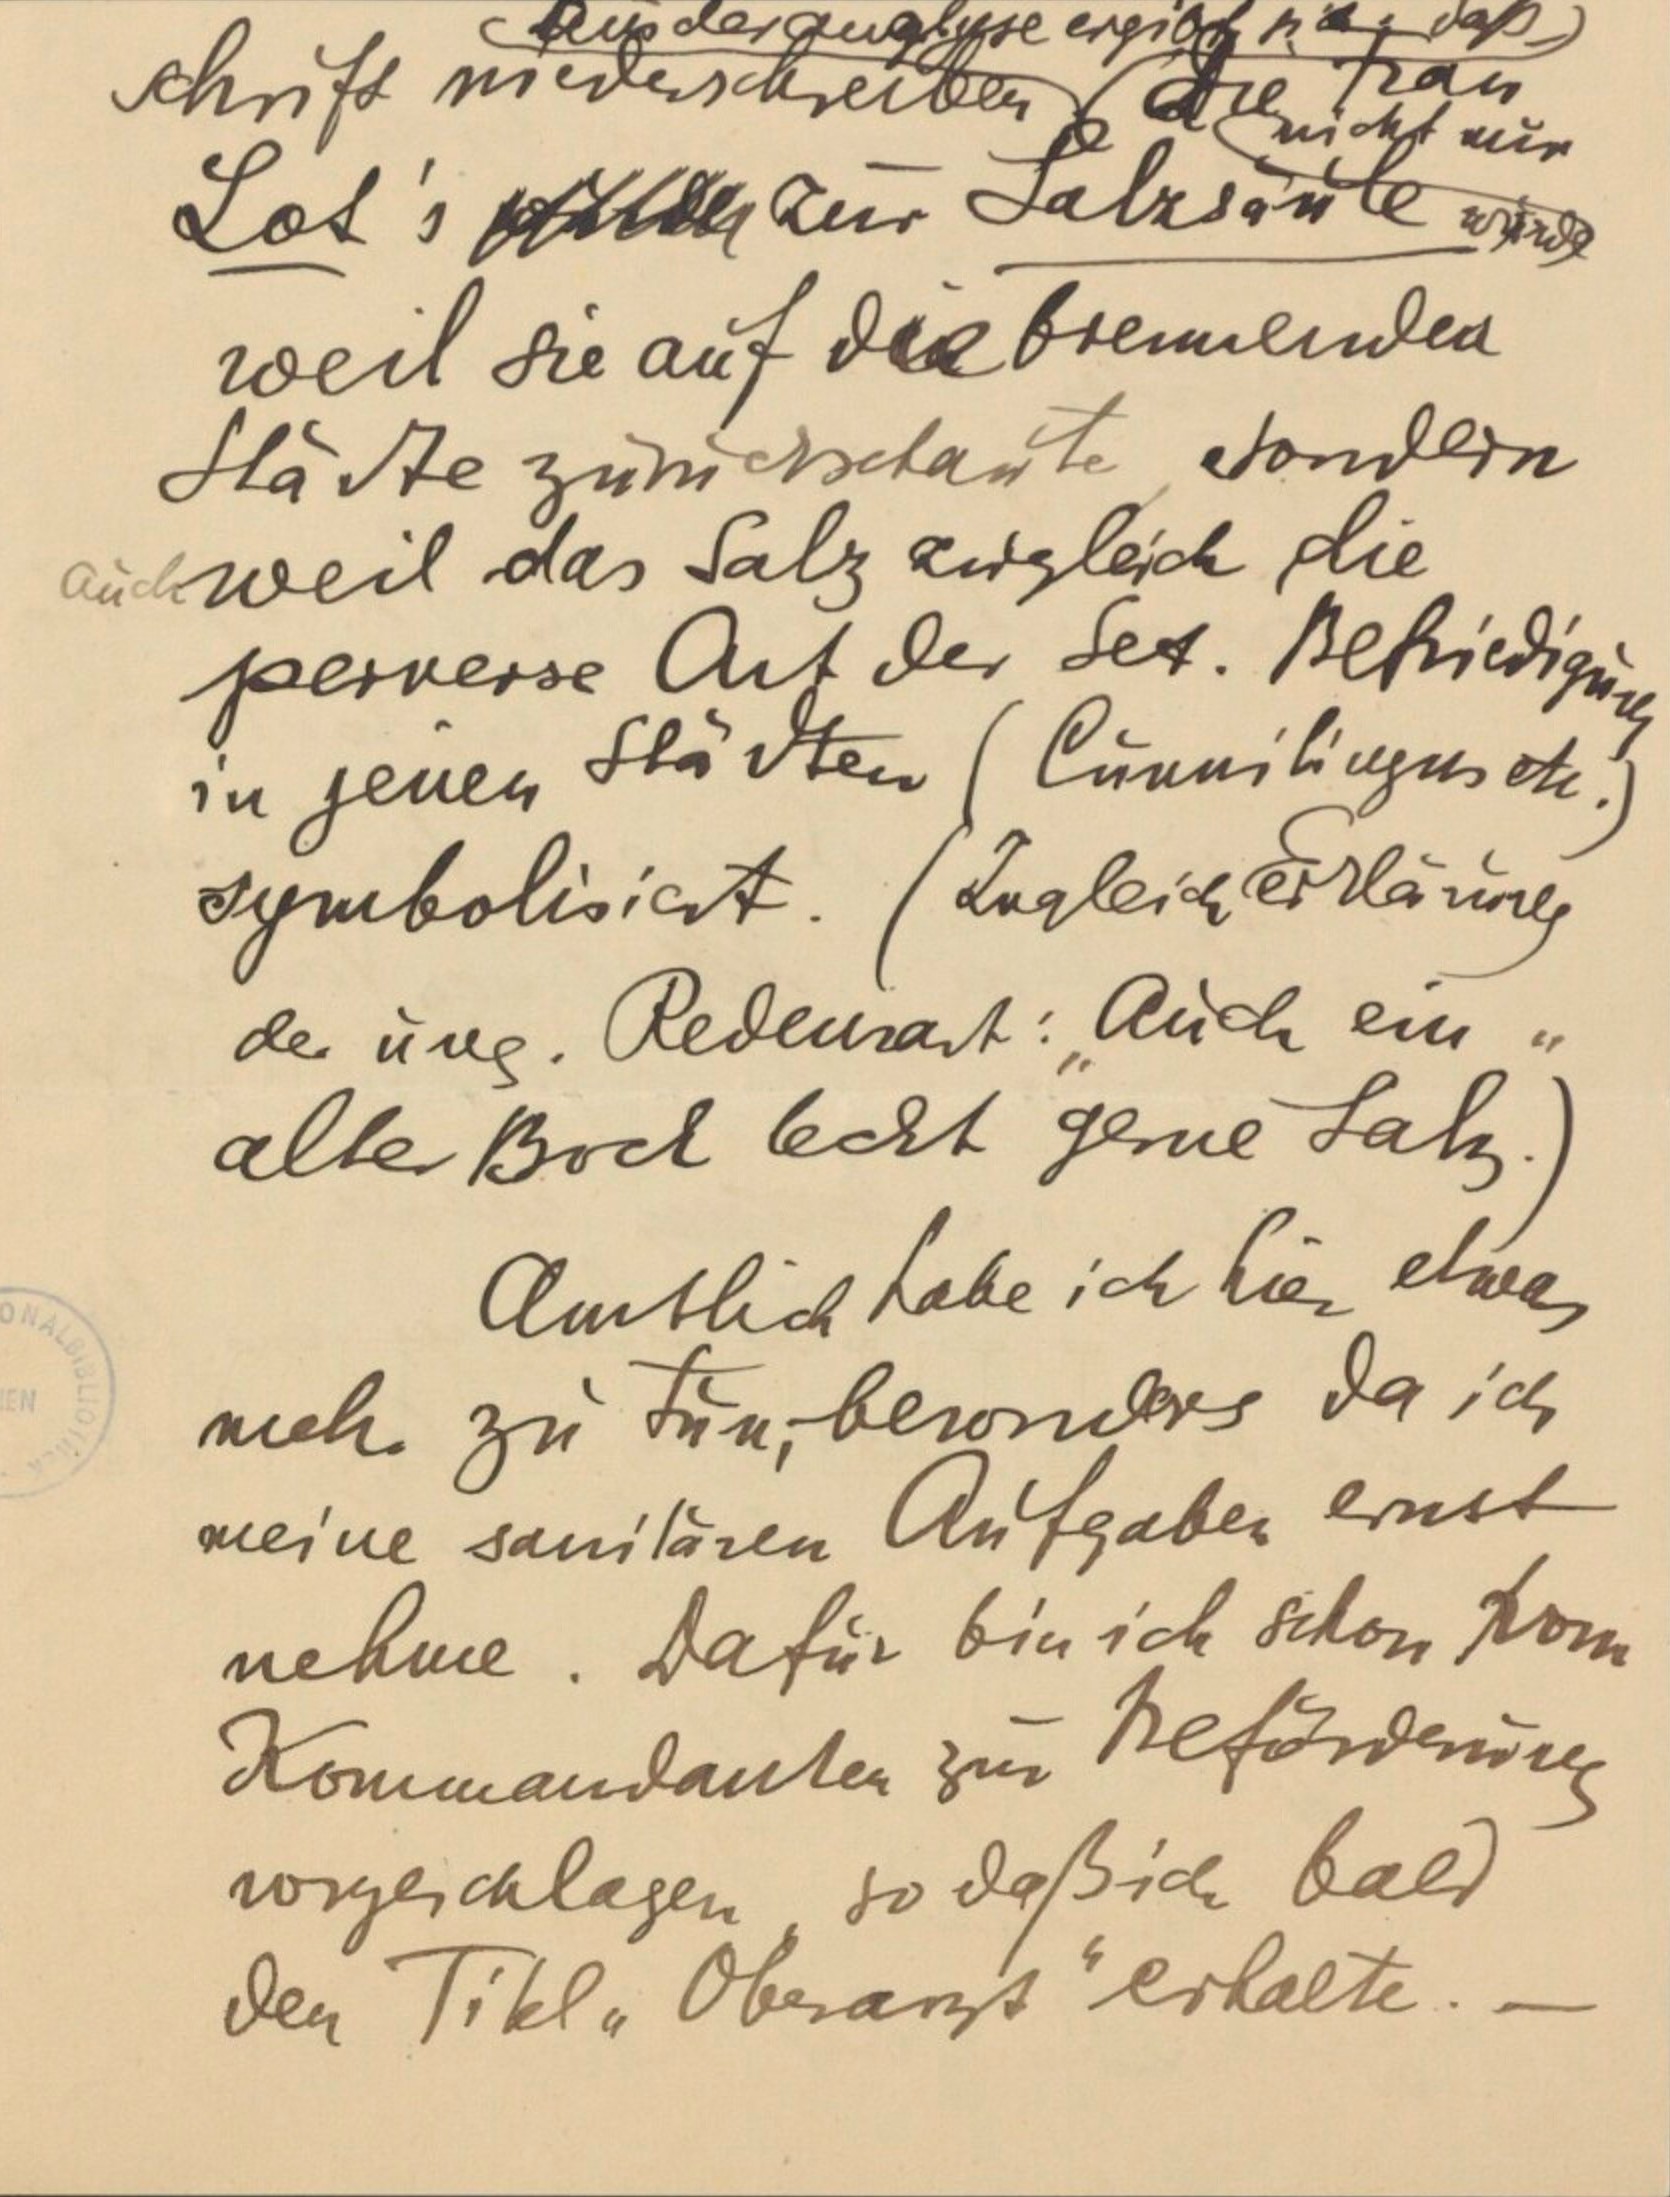 Aus der Analyse ergibt sich, daß
schrift niederschreiben die Frau
nicht nur
Lot's zur Salzsäule wurde
weil sie auf die brennenden
Städte zurückschaute, sondern
auch weil das Salz zugleich die
perverse Art der Sex. Befriedigung
in jenen Städten (Cunnilingus etc.)
symbolisiert. (Zugleich Erklärung
der ung. Redensart: „Auch ein
alter Bock leckt gerne Salz.)
Amtlich habe ich hier etwas
mehr zu tun, besonders da ich
meine sanitären Aufgaben ernst
nehme. Dafür bin ich schon vom
Kommandanten zur Beförderung
vorgeschlagen, so daß ich bald
den Titel „Oberarzt“ erhalte. —